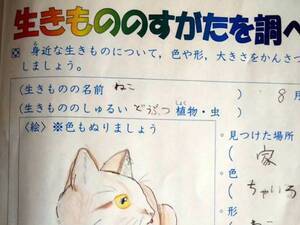 生きもののすがたを調べ
※ 身近な生きものについて，色や形，大きさをかんさつ
しましょう。
（生きものの名前 ねこ ） 8月
（生きもののしゅるい どうぶつ 植物・虫 ）
〈絵〉※色もぬりましょう
・見つけた場所
（ 家
・色
（ ちゃいろ
・形
（